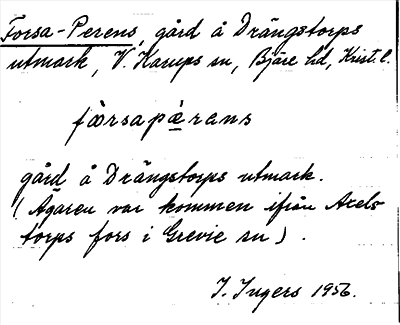 Forsa-Perens, gård å Drängstorps
utmark, V. Karups sn, Bjäre hd, Krist. l.
fårsapærens
gård å Drängstorps utmark.
(Ägaren var kommen ifrån Axels
torps fors i Grevie sn).
I. Ingers 1956.